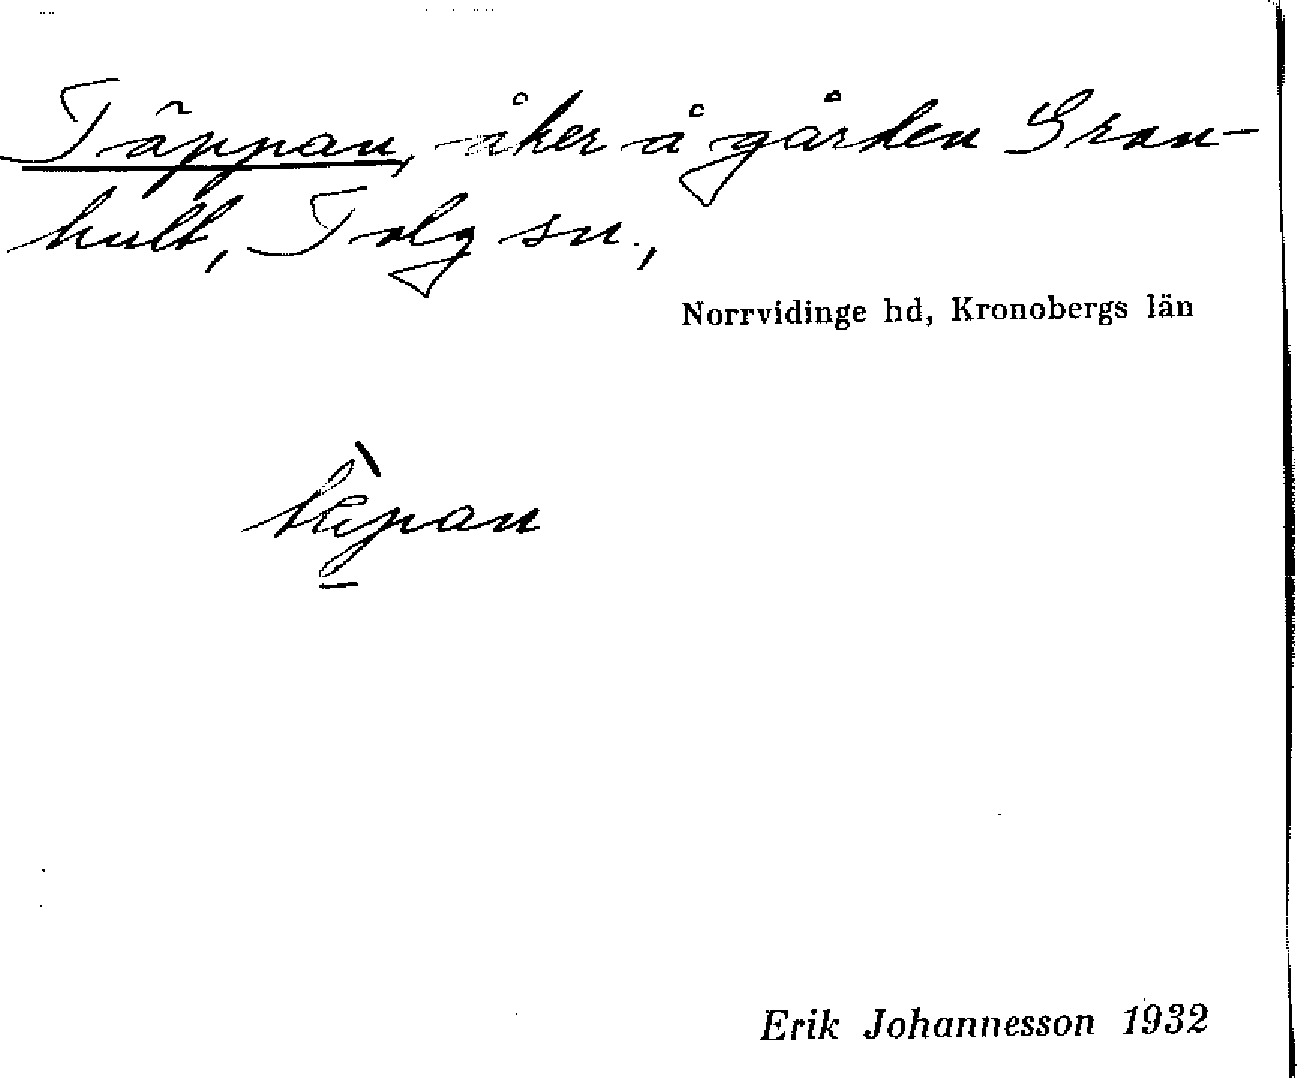 Täppan, åker å gården Gran-
hult, Tolg sn.,
Norrvidinge hd, Kronobergs län
Erik Johannesson 1932